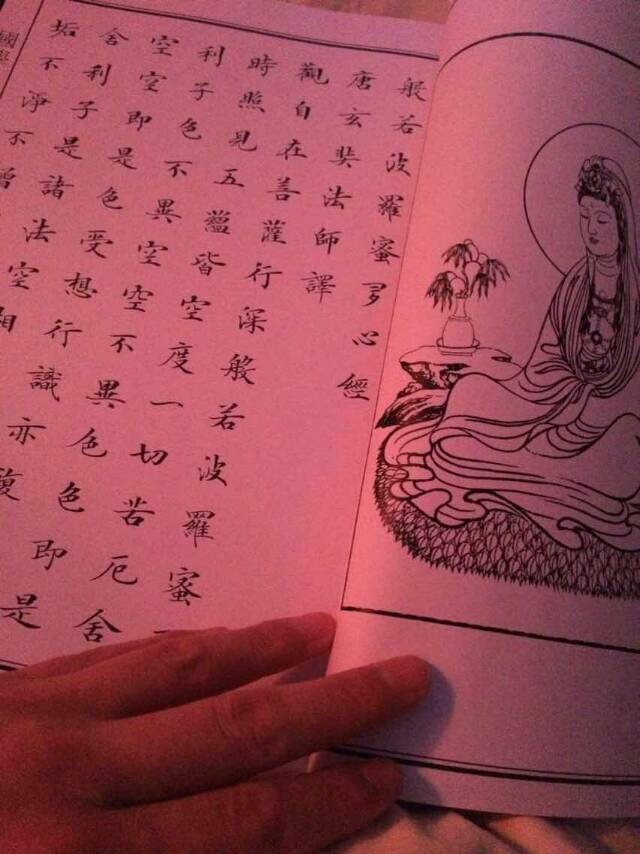 般若波羅蜜多心經
唐玄奘法師譯
觀自在菩薩行深般若波羅蜜
時照見五蘊皆空度一切苦厄舍
利子色不異空空不異色色即是
空空即是色受想行識亦復
舍利子是諸法空相
垢不淨不增
國學